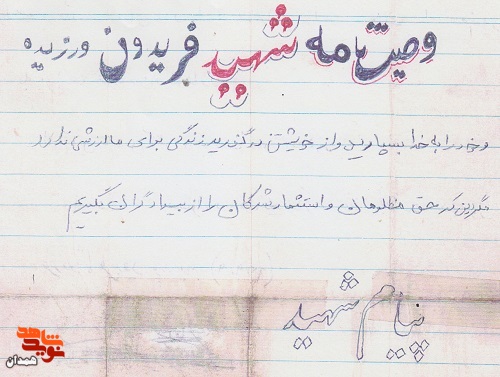 وصیت نامه شهید فریدون ورزیده
وخود را به خدا بسپارید و از خویشتن درگذرید زندگی برای ما ارزشی ندارد
مگر این که حق مظلومان و استثمار شدگان را از بیدادگران بگیریم
پیام شهید
نوید شاهد
همدان